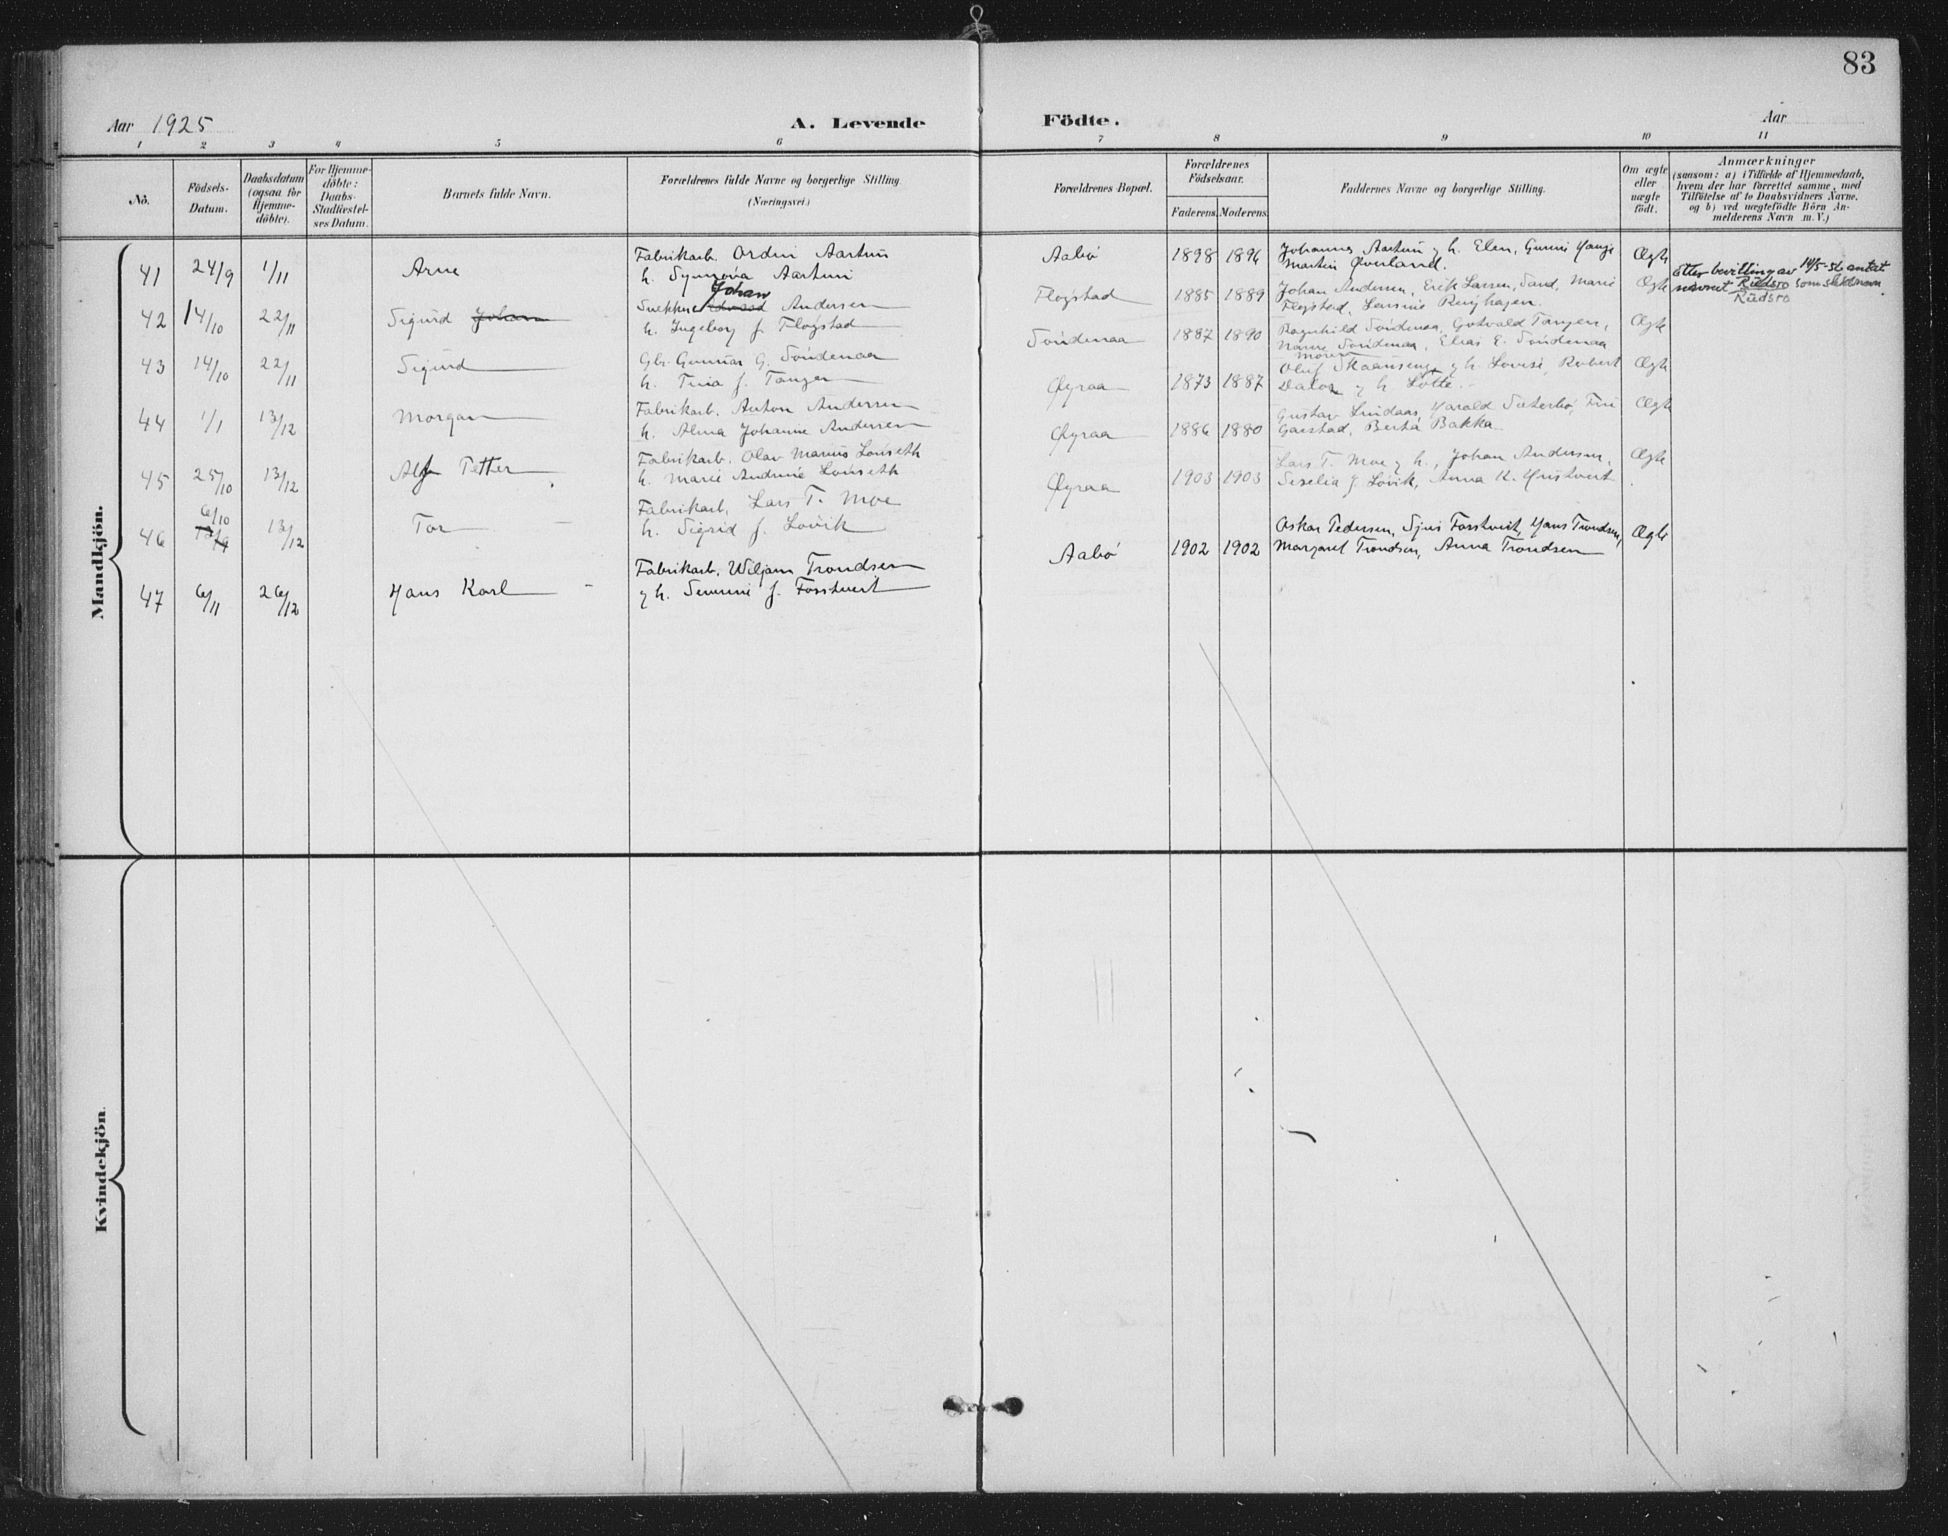 83
Aar 1925 A. Levende Födte. Aar
1 2 3 4 5 6 7 8 9 10 11
No.
Födsels-
Datum.
Daabsdatum
(ogsaa for
Hjemme-
döbte).
For Hjemme-
döbte:
Daabs-
Stadfæstel-
ses Datum.
Barnets fulde Navn.
Forældrenes fulde Navne og borgerlige Stilling
(Næringsvei.)
Forældrenes Bopæl.
Forældrenes
Födselsaar.
Faderens. Moderens.
Faddernes Navne og borgerlige Stilling.
Om ægte
eller
uægte
födt.
Anmærkninger
(saasom: a) i Tilfælde af Hjemmedaab,
hvem der har forrettet samme, med
Tilföielse af to Daabsvidners Navne,
og b) ved uægtefödte Börn An-
melderens Navn m.V.)
Mandkjön.
41 24/9 1/11 Arne
Fabrikarb. Ordin Aartun
h. Synnöva Aartun
Aabö 1898 1896
Johannes Aartun og h. Elen, Gunni Hauge
Martin Överland.
Ægte
42 14/10 22/11 Sigurd Johan
Snekker Johan Andersen
h. Ingeborg f. Flogstad
Flogstad 1885 1889
Johan Andersen, Erik Larsen, Sand, Marie
Flogstad, Lensine Ringhagen.
Ægte
etter bevilling av 14/5-56 antat
navnet Rudsro som slektsnavn.
Rudsro
43 14/10 22/11 Sigurd
Gbr. Gunnar G. Söndenaa
h. Tina f. Tangen
Söndenaa 1887 1890
Ragnhild Söndenaa, Gotvald Tangen,
Söndenaa, Elias E. Söndenaa
Moren
Ægte
44 1/1 13/12 Morgan
Fabrikarb. Anton Andersen
h. Alma Johanne Andersen
Øyraa 1873 1887
Oluf Skaanseng og h. Lovise, Robert
og h. Lotte.
Ægte
45 25/10 13/12 Alf Petter
Fabrikarb. Olav Marius Lönseth
h. Marie Andrine Lönseth
Øyraa 1886 1880
Gustav Lindaas, Harald Sæterbö,
Gaustad, Berta Bakka
Ægte
46 6/10 13/12 Tor
Fabrikarb. Lars T. Moe
h. Sigrid f. Lövik
Øyraa 1903 1903
Lars T. Moe og h., Johan Andersen,
Seselia J Lövik, Anna K.
Ægte
47 6/11 26/12 Hans Karl
Fabrikarb. Wiljam Trondsen
og h. Severine f. Fosstveit
Aabö 1902 1902
Oskar Pedersen, Sjur Fosstveit, Hans Trondsen,
Margaret Trondsen, Anna Trondsen
Ægte
Kvindekjön.